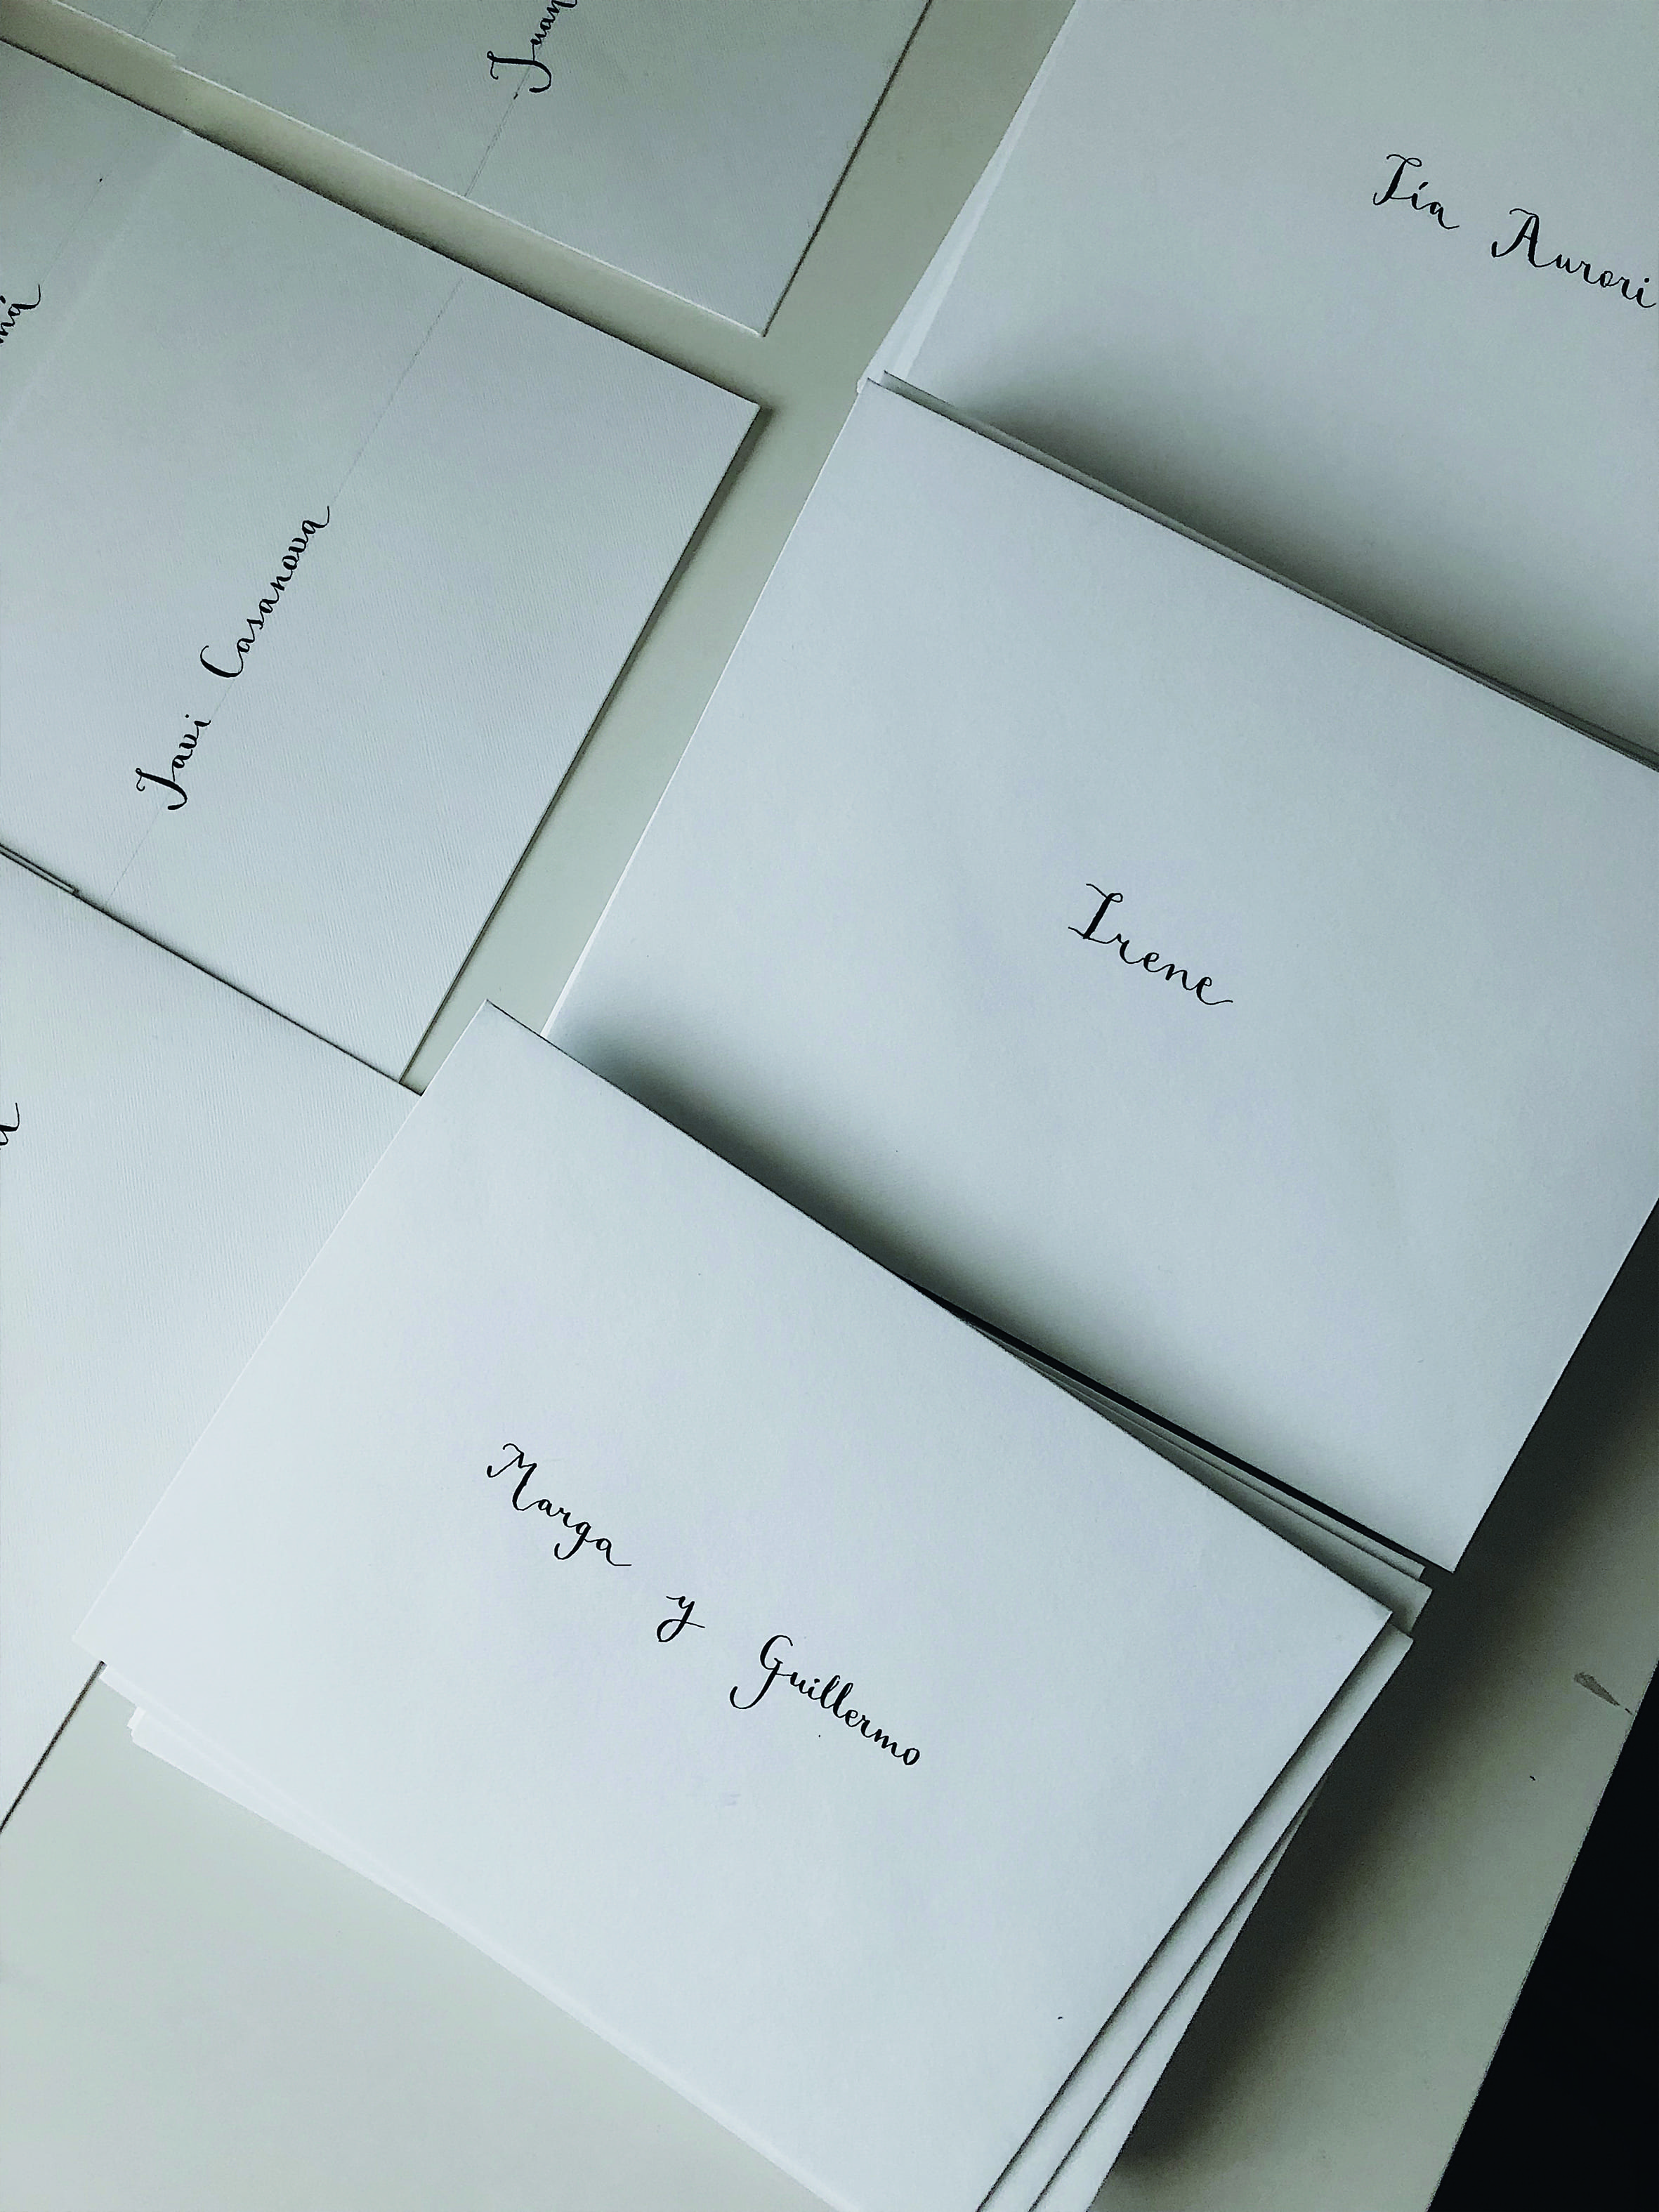 Juan
Tía Aurori
Javi Casanova
Irene
Marga y Guillermo